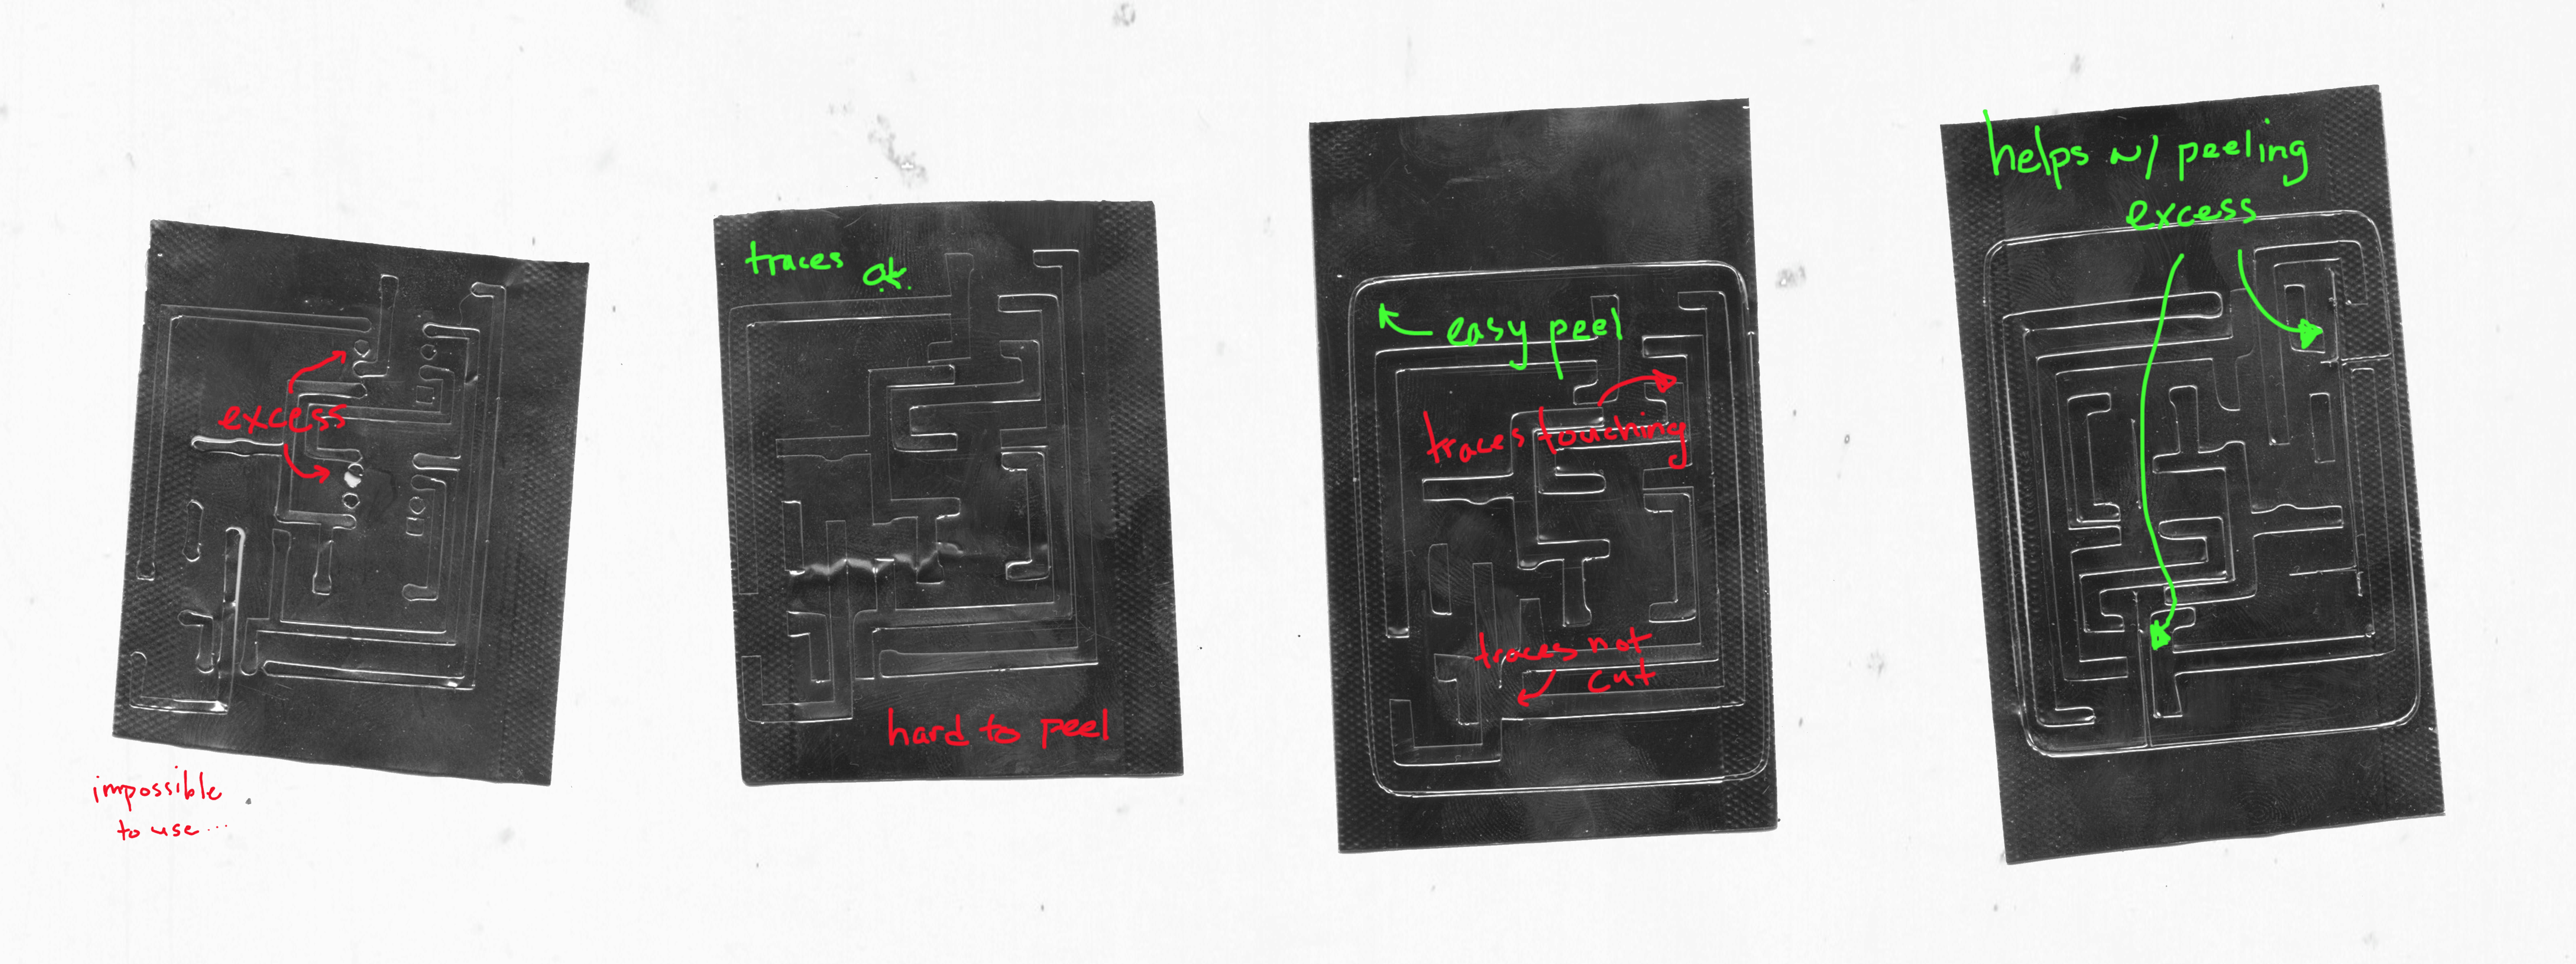 excess
impossible
to use...
traces ok.
hard to peel
easy peel
traces touching
traces not
cut
helps w/ peeling
excess